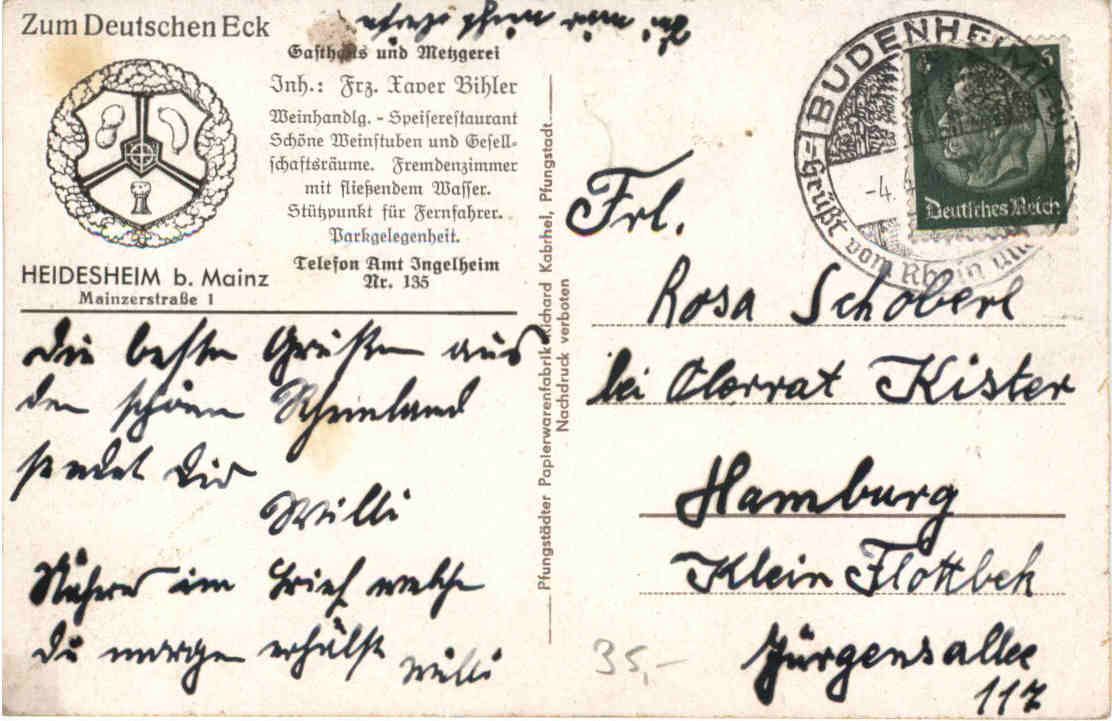 Zum Deutschen Eck
Gasthaus und Metzgerei
Inh.: Frz. Xaver Bihler
Weinhandlg. - Speiserestaurant
Schöne Weinstuben und Gesell-
schaftsräume. Fremdenzimmer
mit fließendem Wasser.
Stützpunkt für Fernfahrer.
Parkgelegenheit.
Telefon Amt Ingelheim
Nr. 135
HEIDESHEIM b. Mainz
Mainzerstraße 1
Die besten Grüßen aus
den schönen Rheinland
sendet Dir
Willi
Näheres im Brief welche
du morgen erhälst Willi
Pfungstädter Papierwarenfabrik Richard Kabrhel, Pfungstadt
Nachdruck verboten
BUDENHEIM
-4. 4
Grüßt vom Rhein und
6
Deutsches Reich
Frl.
Rosa Schoberl
bei Kister
Hamburg
Klein Flottbek
Jürgensallee
117
35,-